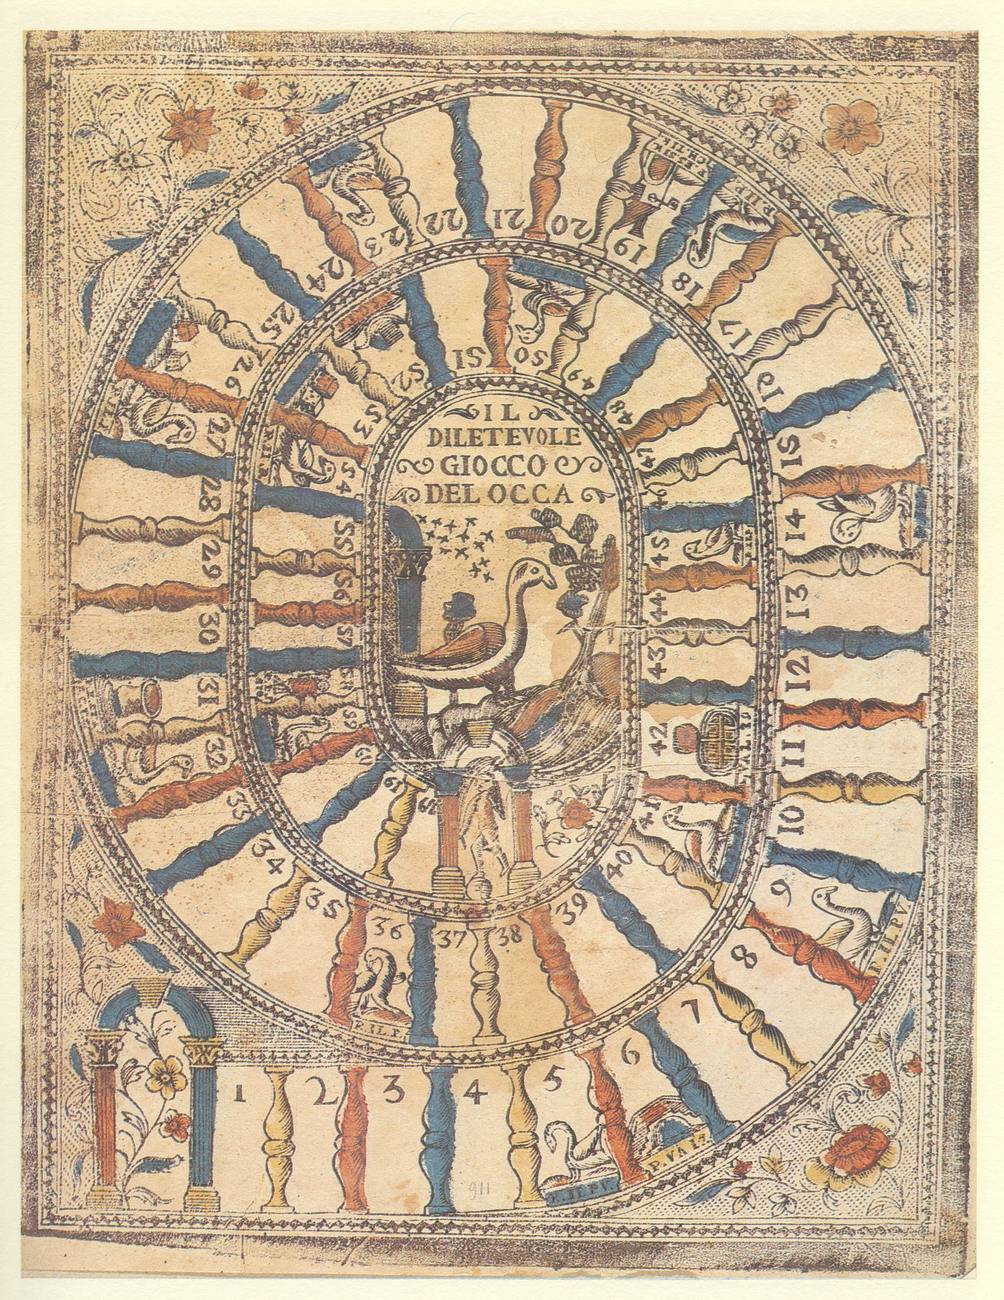 IL
DILETEVOLE
GIOCCO
DEL OCCA
1
2
3
4
5
6
7
8
9
10
11
12
13
14
15
16
17
18
19
20
21
22
23
24
25
26
27
28
29
30
31
32
33
34
35
36
37
38
39
40
41
42
43
44
45
46
47
48
49
50
51
52
53
54
55
56
57
58
59
60
61
911